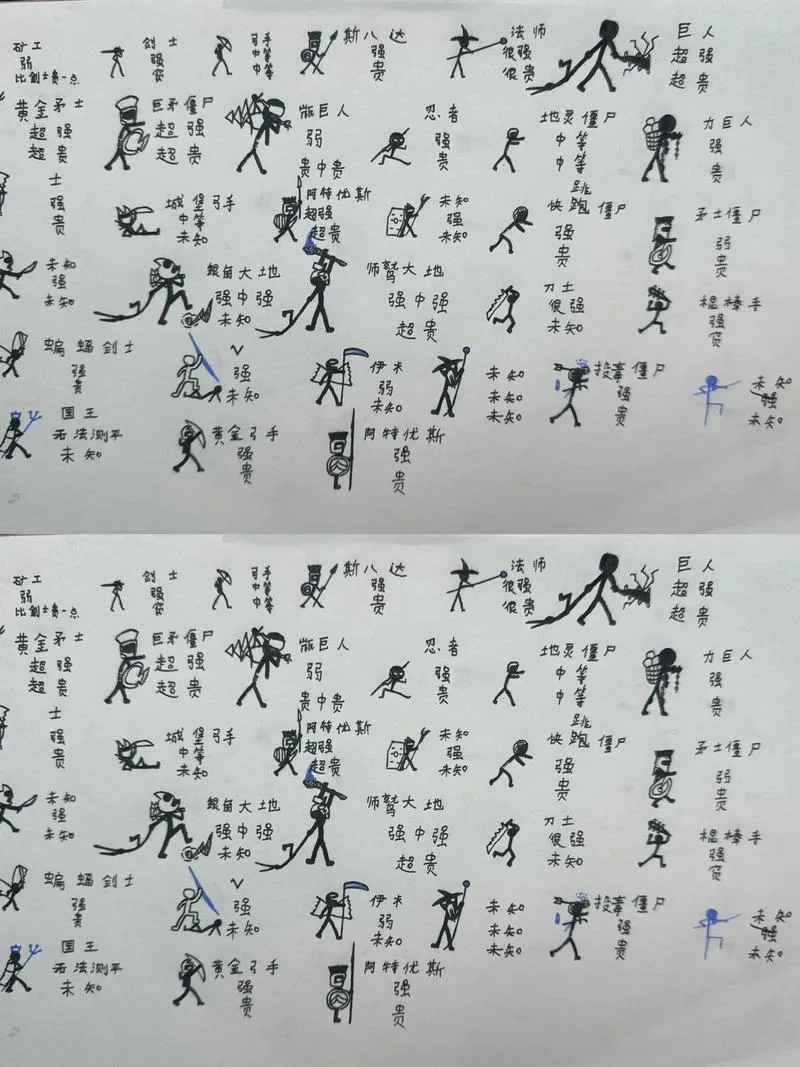 矿工
弱
比剑士贵一点
剑士
强
贵
弓手
中等
中等
斯八达
强
贵
法师
很强
很贵
巨人
超强
超贵
黄金矛士
超强
超贵
巨矛僵尸
超强
超贵
巨人
弱
贵中贵
忍者
强
贵
地灵僵尸
中等
中等
力巨人
强
贵
士
强
贵
城堡弓手
中等
未知
阿特优斯
超强
超贵
未知
强
未知
跳
快跑僵尸
强
贵
矛士僵尸
弱
贵
未知
强
未知
银角大地
强中强
未知
师鹫大地
强中强
超贵
刀士
很强
未知
棍棒手
强
贵
蝙蝠剑士
强
贵
V
强
未知
伊未
弱
未知
未知
未知
未知
投毒僵尸
强
贵
未知
强
未知
国王
无法测平
未知
黄金弓手
强
贵
阿特优斯
强
贵
矿工
弱
比剑士贵一点
剑士
强
贵
弓手
中等
中等
斯八达
强
贵
法师
很强
很贵
巨人
超强
超贵
黄金矛士
超强
超贵
巨矛僵尸
超强
超贵
巨人
弱
贵中贵
忍者
强
贵
地灵僵尸
中等
中等
力巨人
强
贵
士
强
贵
城堡弓手
中等
未知
阿特优斯
超强
超贵
未知
强
未知
跳
快跑僵尸
强
贵
矛士僵尸
弱
贵
未知
强
未知
银角大地
强中强
未知
师鹫大地
强中强
超贵
刀士
很强
未知
棍棒手
强
贵
蝙蝠剑士
强
贵
V
强
未知
伊未
弱
未知
未知
未知
未知
投毒僵尸
强
贵
未知
强
未知
国王
无法测平
未知
黄金弓手
强
贵
阿特优斯
强
贵